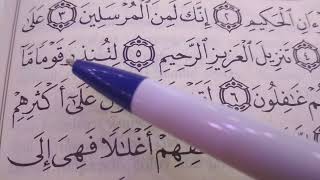 ٱلْحَكِيمِ ٢ إِنَّكَ لَمِنَ ٱلْمُرْسَلِينَ ٣ عَلَىٰ
٤ تَنزِيلَ ٱلْعَزِيزِ ٱلرَّحِيمِ ٥ لِتُنذِرَ قَوْمًا مَّا
غَٰفِلُونَ ٦ عَلَىٰٓ أَكْثَرِهِمْ
أَغْلَٰلًا فَهِىَ إِلَى